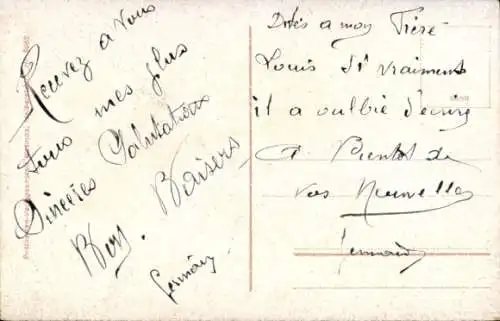 Recevez a vous
tous mes plus
Sincères Salutations
Bons. Baisers
Germain
Dites a mon Frère
Louis Si vraiment
il a oublie d'ecrire
A Bientot de
vos Nouvelles
Germain